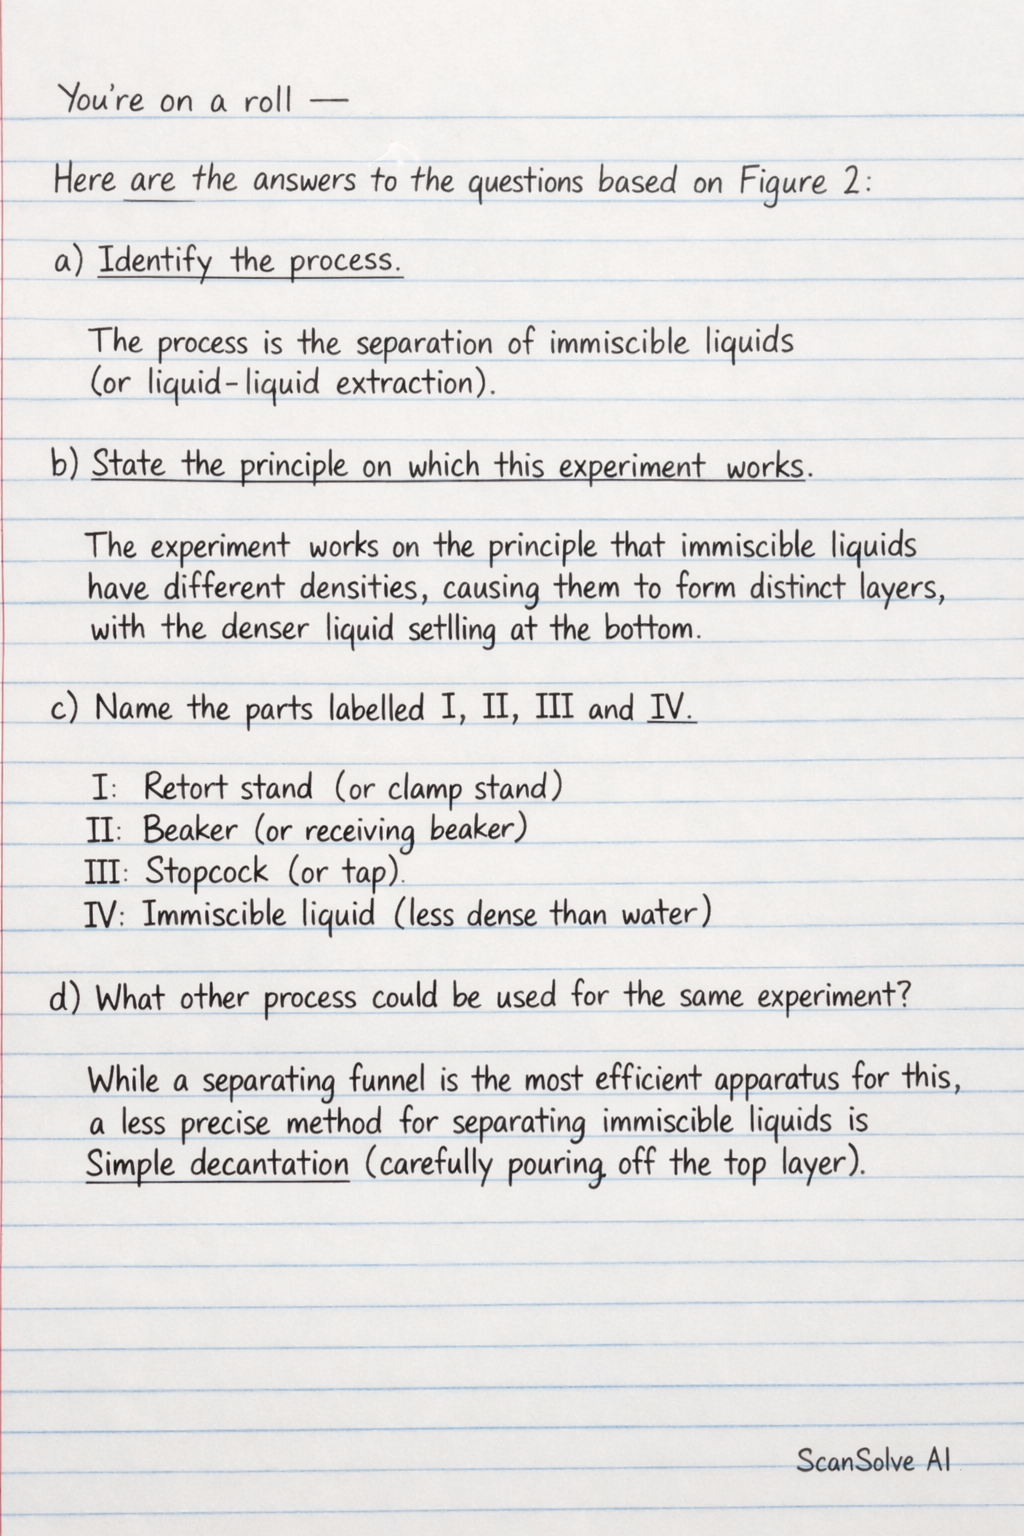 You're on a roll —
Here are the answers to the questions based on Figure 2:
a) Identify the process.
The process is the separation of immiscible liquids
(or liquid-liquid extraction).
b) State the principle on which this experiment works.
The experiment works on the principle that immiscible liquids
have different densities, causing them to form distinct layers,
with the denser liquid setlling at the bottom.
c) Name the parts labelled I, II, III and IV.
I: Retort stand (or clamp stand)
II: Beaker (or receiving beaker)
III: Stopcock (or tap).
IV: Immiscible liquid (less dense than water)
d) What other process could be used for the same experiment?
While a separating funnel is the most efficient apparatus for this,
a less precise method for separating immiscible liquids is
Simple decantation (carefully pouring off the top layer).
ScanSolve AI